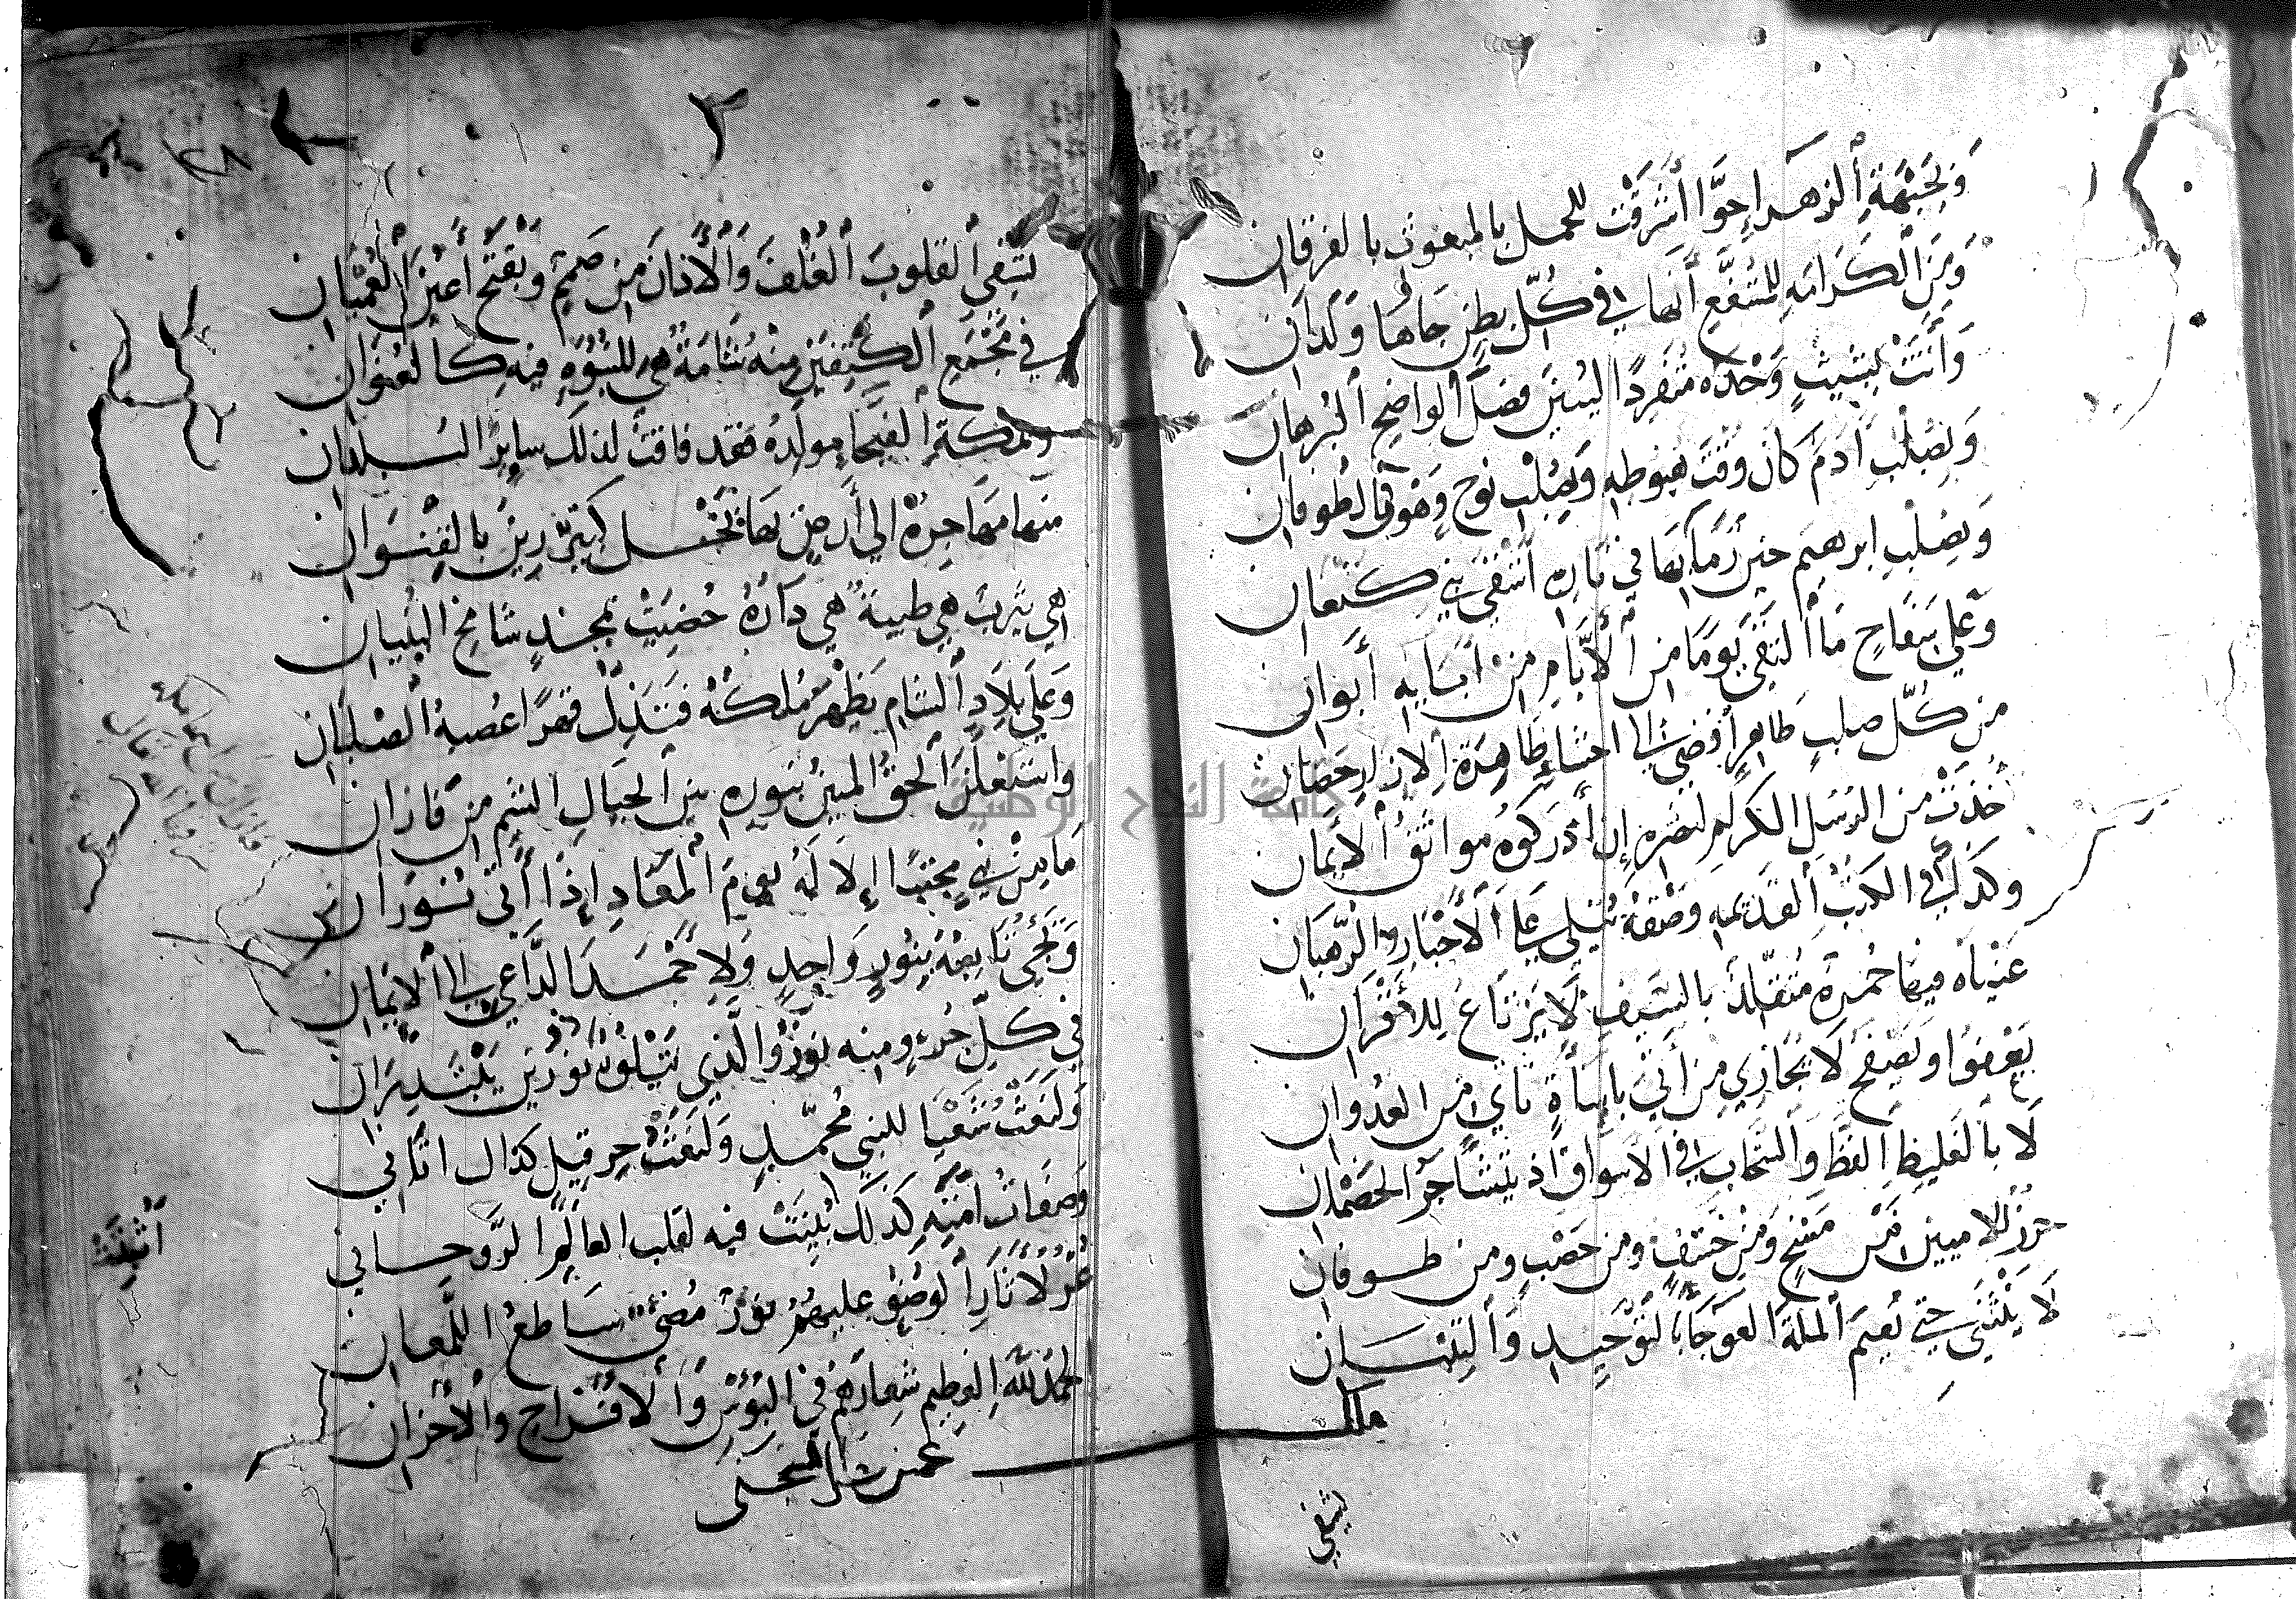 وَبِجَبْهَةِ الزهراءِ حوَّا أَشرَقَت للحمل بالمبعوث بالفرقان
وَمِنَ الكَرَامَةِ للمشفَّعِ أنها في كُلّ بطنٍ جاءها وَلَدَان
وَأَتَتْ بشيثٍ وَحْدَه متفردًا ليبين فضل الواضح البُرهان
وَبِصُلْبِ آدم كان وقتَ هبوطه وَبِصُلْبِ نوح وَهْوَ في الطوفان
وَبِصُلْبِ ابرهيم حين رَمَا بها في ناره أشقى بني كنعان
وَعَلَى سِفَاحٍ ما التقى يَومًا من الأيامِ من آبايه أبوان
من كُلّ صلبٍ طاهرٍ أفضى إلى احشاء طاهرة الازار حصان
أُخِذَتْ من الرُسُلِ الكرام لنصره إن أدركوه مواثقُ الأيمان
وكذاك في الكتب القديمه وصفه يُتلى على الأحبار والرهبان
عيناه فيها حُمرة متقلّد بالسيف لا يرتاع للأقران
يعفوا ويصفح لا يجازي من أتى بإساءةٍ نايٍ من العدوان
لا بالغليظ الفظِّ والسخاب في الاسواق اذ يتشاجر الخصمان
حرز للاميين من مسخ ومن خسف ومن حصب ومن طوفان
لا ينثني حتى يُقيم الملة العوجاء بالتوحيد والتبيان
مالك
ليشفي
١٢٨
ليشفي القلوبَ الغُلْفَ والأذانَ من صَمَمٍ ويفتح أعين العُمْيان
في مَجْمَعِ الكتفين منه شامةٌ هي للنبوّه فيه كالعنوان
وبمكة الفيحاء مولده فقد فاقت لذلك ساير البلدان
منها مهاجره الى أرض بها نخل كثير زين بالقنوان
هي يثرب هي طيبة هي داره خُصّت بمجد شامخ البنيان
وعلى بلاد الشام يظهر مُلكه فتذل قهرًا عصبة الصلبان
واستعلن الحق المبين بنوره بين الجبال الشم من فاران
ما من نبي مجتبا إلا له يوم المعاد إذا أتى نُوران
ويجئ تابعه بنور واحد ولأحمد الداعي إلى الايمان
في كل جزء منه نور والذي يتلوه نورين يبتدران
ولنعت شعيا للنبي محمد ولنعت حزقيل كذاك اتاني
وصفات أمته كذلك بُيّنت فيه لقلب العالم الروحاني
غر لآثار الوضوء عليهم نور مضئ ساطع اللمعان
الحمد لله العظيم شعارهم في البؤس والأفراح والأحزان